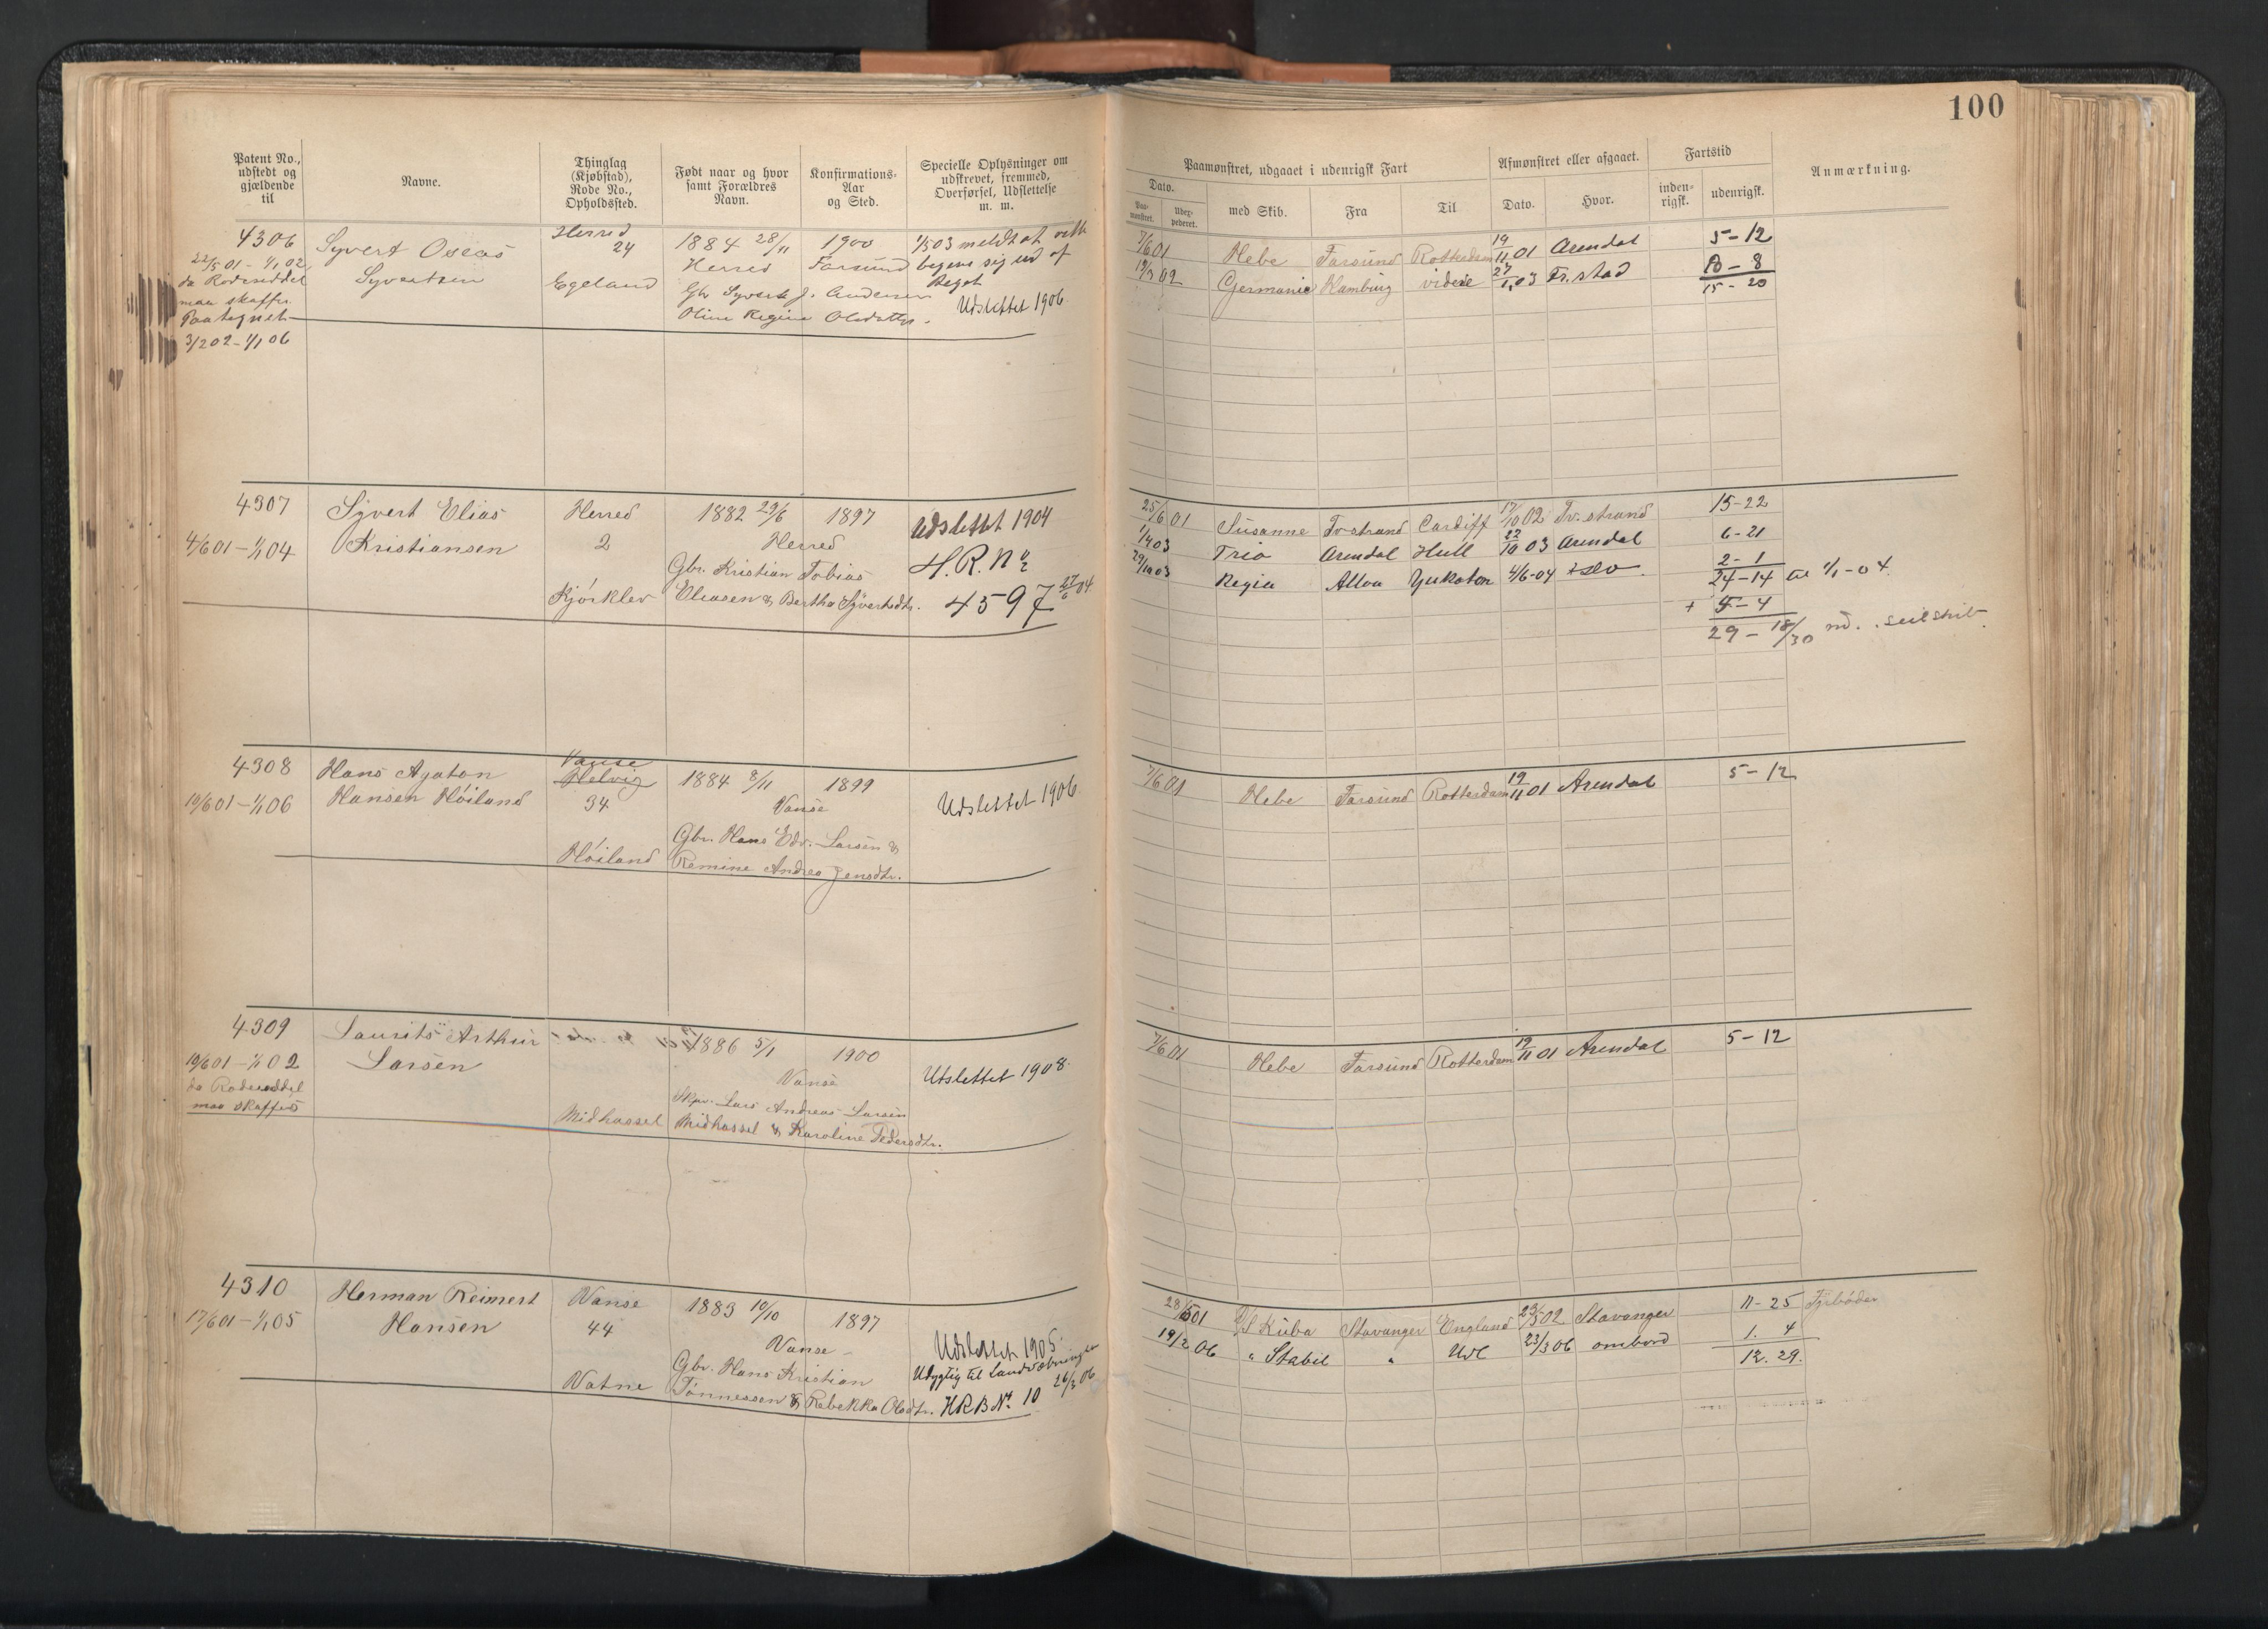 100
Patent No., udstedt og gjældende til
Navne.
Thinglag (Kjøbstad), Rode No., Opholdssted.
Født naar og hvor samt Forældres Navn.
Konfirmations-Aar og Sted.
Specielle Oplysninger om udskrevet, fremmed, Overførsel, Udslettelse m. m.
Paamønstret, udgaaet i udenrigsk Fart
Afmønstret eller afgaaet.
Fartstid
Anmærkning.
Dato.
Paa-mønstret.
Udex-pederet.
med Skib.
Fra
Til
Dato.
Hvor.
inden-rigsk.
udenrigsk.
4306
22/5 01 - 1/1 02
da Roderuddel
maa skaffes
Paategnet
3/2 02 - 1/1 06
Syvert Oseas
Syvertsen
Herred
24
Egeland
1884 28/11 1900
Herred Farsund
Gbr Syvert J. Andersen
Oline Regine Olsdatter.
1/5 03 meldt at ville
begive sig ud af
Riget
Udslettet 1906
7/6 01 Hebe Farsund Rotterdam 19/11 01 Arendal 5-12
19/3 02 Germania Hamburg videre 27/1 03 Fr.stad 10-8
15-20
4307
4/6 01 - 1/1 04
Syvert Elias
Kristiansen
Herred
2
Kjørklev
1882 29/6 1897
Herred
Gbr. Kristian Tobias
Eliasen & Bertha Syvertsdtr.
Udslettet 1904
H.R. No
4597 27/6 04.
25/6 01 Susanne Tv.strand Cardiff 17/10 02 Tv.strand 15-22
1/4 03 Trio Arendal Hull 22/10 03 Arendal 6-21
29/10 03 Regia Alloa Yukatan 4/6-04 2-1
24-14 til 1/1-04
+ 5-4
29-18/30
4308
10/6 01 - 1/1 06
Hans Agaton
Hansen Høiland
Vanse
Helvig
34
Høiland
1884 8/11 1899
Vanse
Gbr. Hans Edv. Larsen &
Remine Andrea Jensdtr.
Udslettet 1906
7/6 01 Hebe Farsund Rotterdam 19/11 01 Arendal 5-12
4309
10/6 01 - 1/1 02
da Roderuddel
maa skaffes
Laurits Arthur
Larsen
Midhassel
1886 5/1 1900
Vanse
Skpr. Lars Andreas Larsen
Midhassel & Karoline Pedersdtr.
Utslettet 1908.
7/6 01 Hebe Farsund Rotterdam 19/11 01 Arendal 5-12
4310
17/6 01 - 1/1 05
Herman Reimert
Hansen
Vanse
44
Vatne
1883 10/10 1897
Vanse
Gbr. Hans Kristian
Tønnessen & Rebekka Olsdtr.
Udslettet 1905.
Udygtig til Landværningen
HRB No. 10 26/3 06
28/5 01 D/S Kuba Stavanger England 23/5 02 Stavanger 11-25 Fyrbøder
19/2 06 " Stabil " Udl 23/3 06 ombord 1. 4
12. 29.